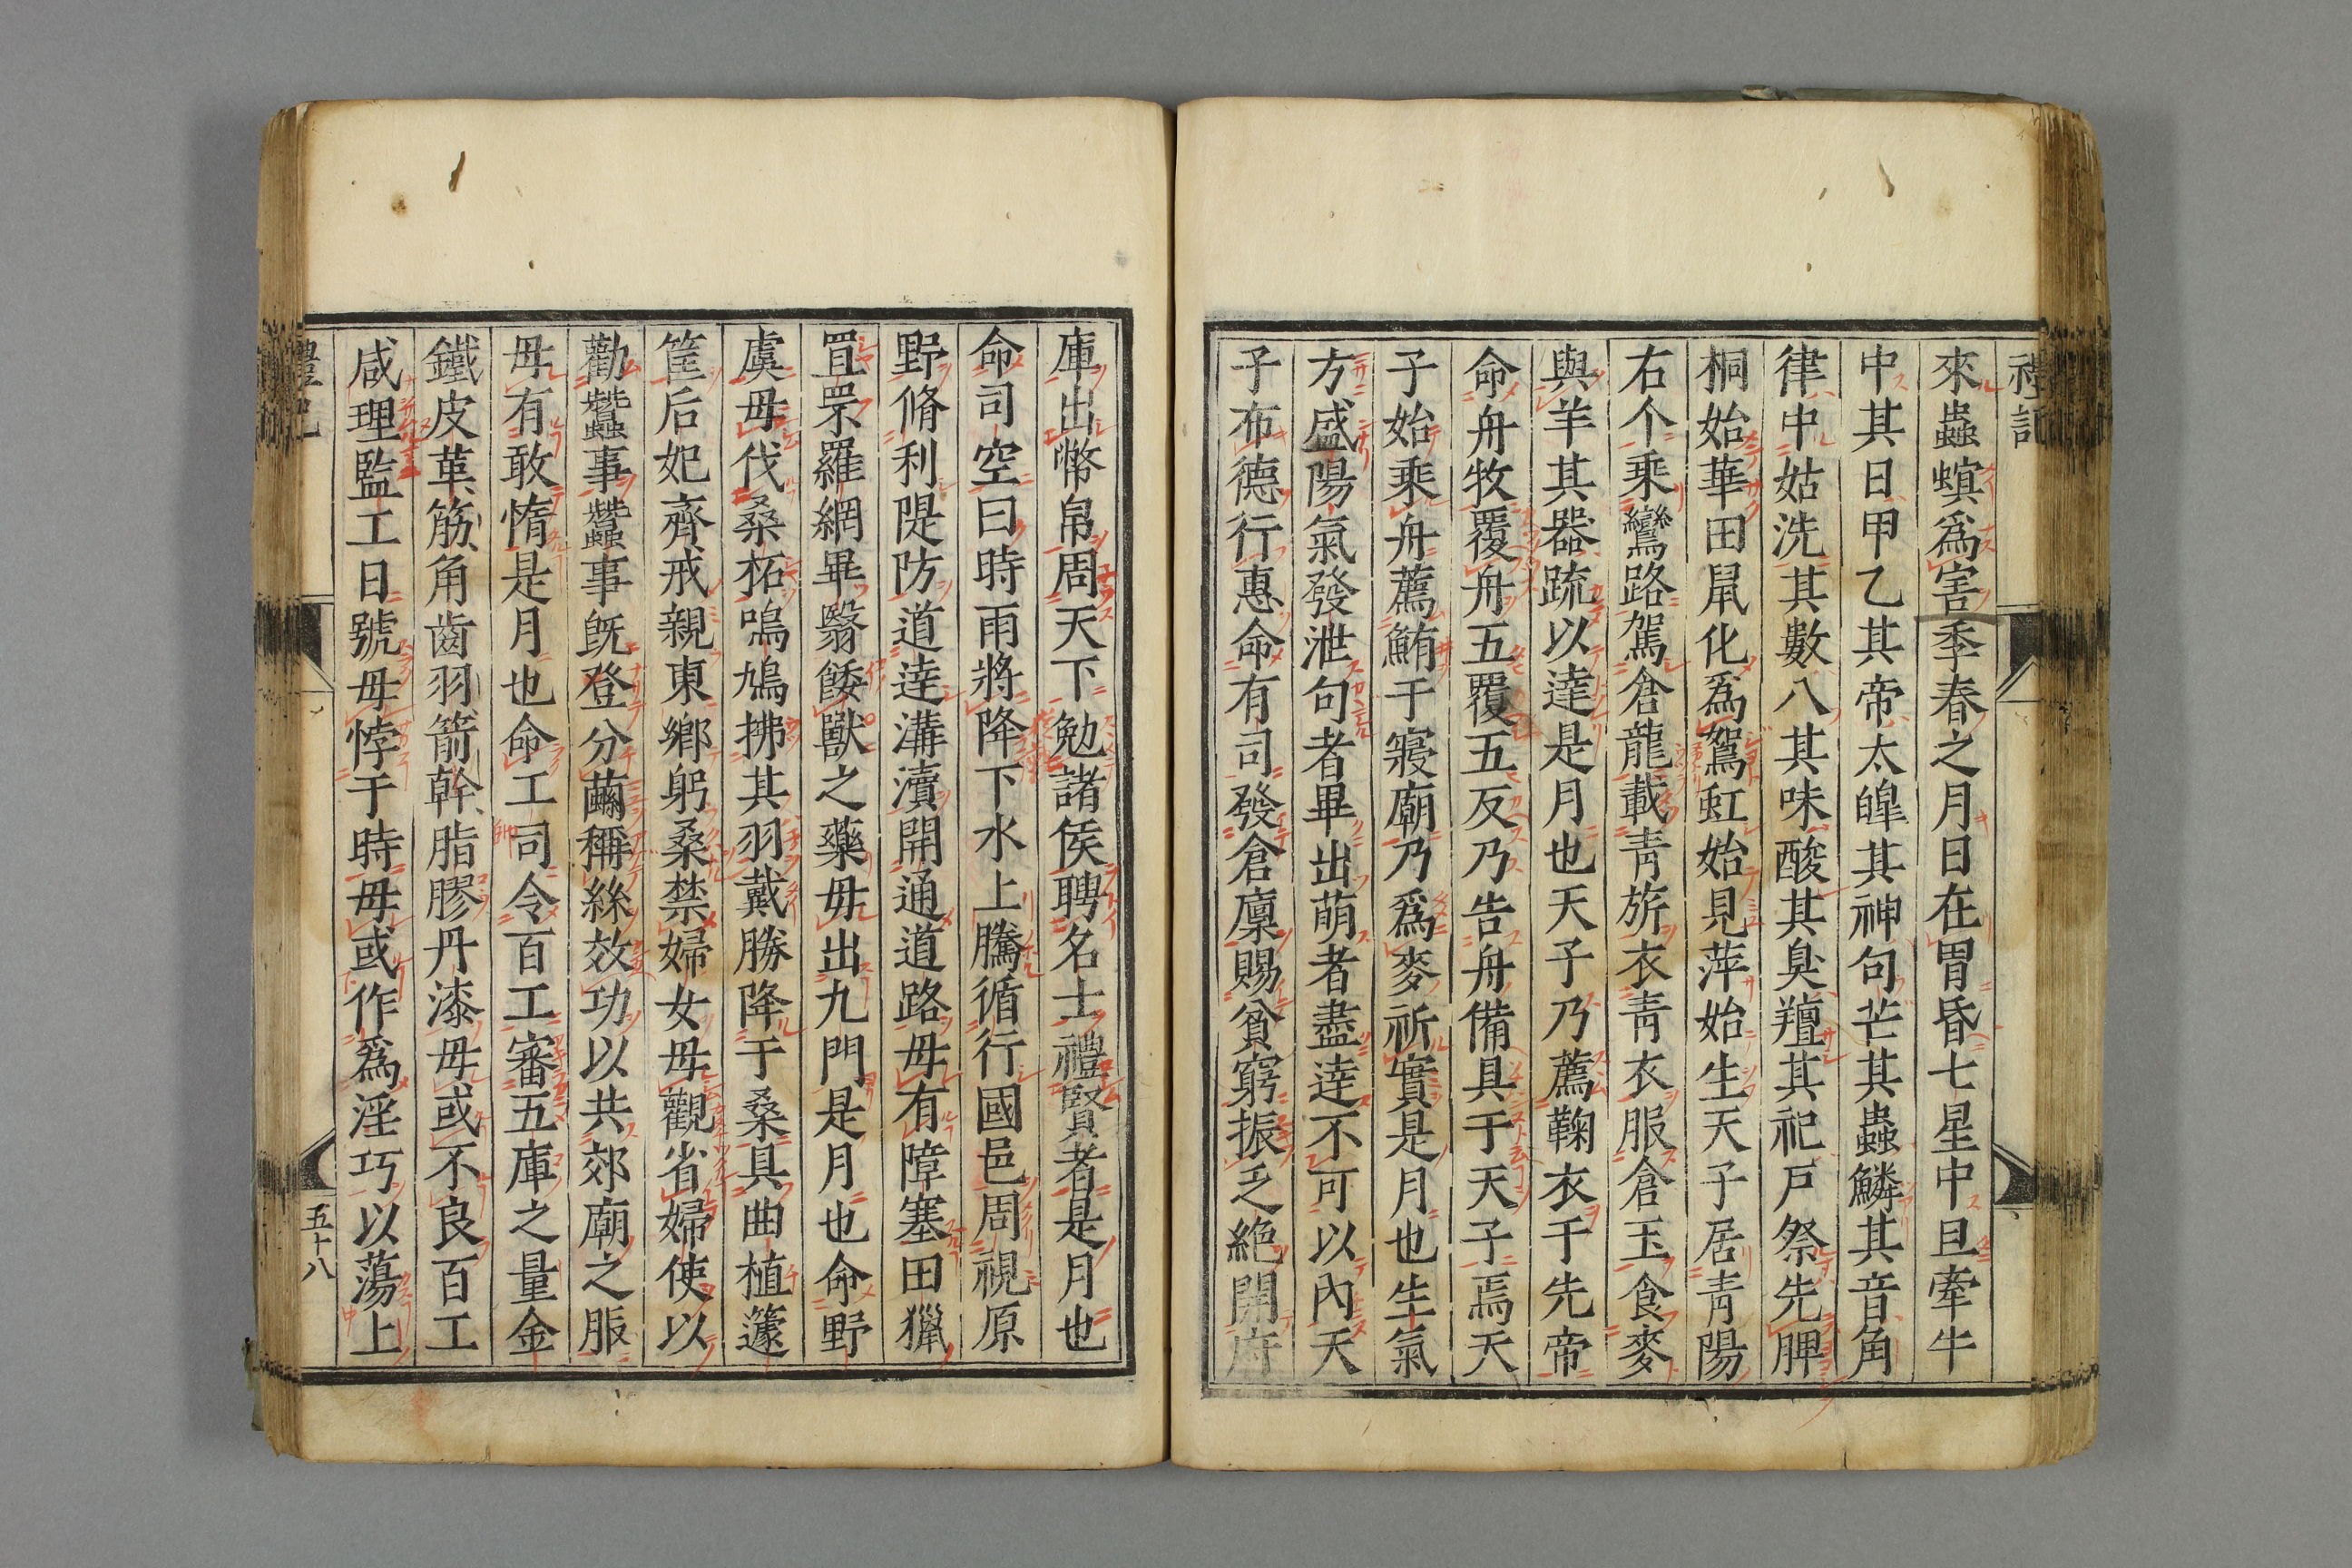 禮記
來蟲螟爲害季春之月日在胃昏七星中旦牽牛
中其日甲乙其帝太皥其神句芒其蟲鱗其音角
律中姑洗其數八其味酸其臭羶其祀戶祭先脾
桐始華田鼠化爲鴽虹始見萍始生天子居青陽
右个乘鸞路駕倉龍載青旂衣青衣服倉玉食麥
與羊其器疏以達是月也天子乃薦鞠衣于先帝
命舟牧覆舟五覆五反乃告舟備具于天子焉天
子始乘舟薦鮪于寢廟乃爲麥祈實是月也生氣
方盛陽氣發泄句者畢出萌者盡達不可以內天
子布德行惠命有司發倉廩賜貧窮振乏絕開府
庫出幣帛周天下勉諸侯聘名士禮賢者是月也
命司空曰時雨將降下水上騰循行國邑周視原
野脩利隄防道達溝瀆開通道路毋有障塞田獵
罝罘羅網畢翳餧獸之藥毋出九門是月也命野
虞毋伐桑柘鳴鳩拂其羽戴勝降于桑具曲植籧
筐后妃齊戒親東鄉躬桑禁婦女毋觀省婦使以
勸蠶事蠶事旣登分繭稱絲效功以共郊廟之服
毋有敢惰是月也命工司令百工審五庫之量金
鐵皮革筋角齒羽箭幹脂膠丹漆毋或不良百工
咸理監工日號毋悖于時毋或作爲淫巧以蕩上
禮記
五十八